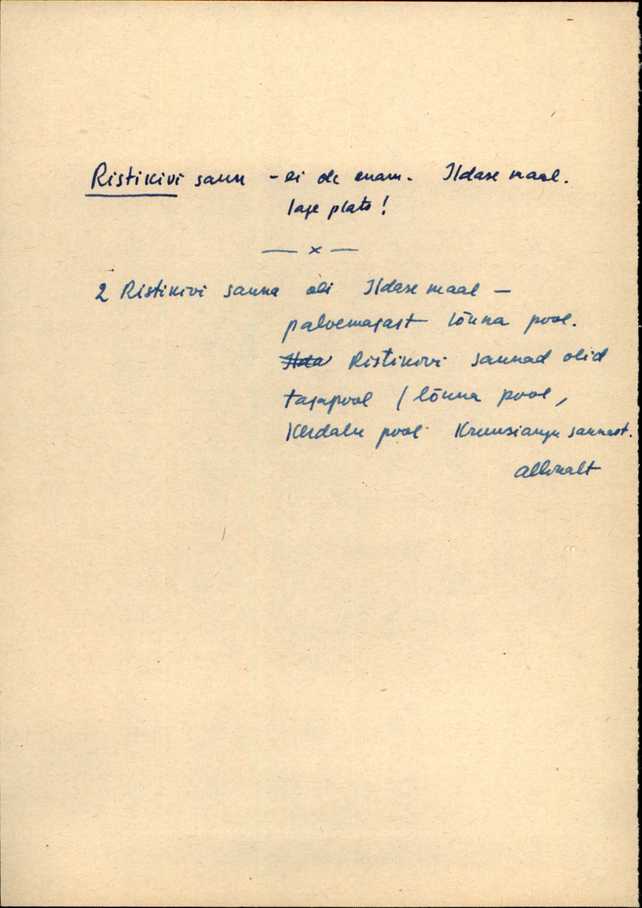 Ristikivi saun - ei ole enam. Ildase maal.
lage plats!
— x —
2 Ristikivi sauna oli Ildase maal —
palvemajast lõuna pool.
Ristikivi saunad olid
tagapool / lõuna pool,
pool saunast.
allomalt